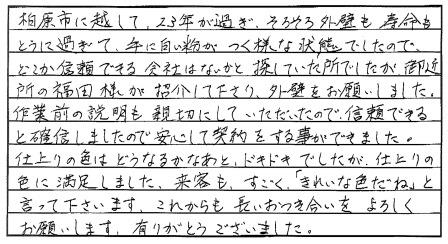 柏原市に越して、23年が過ぎ、そろそろ外壁も寿命も
とうに過ぎて、手に白い粉がつく様な状態でしたので、
どこか信頼できる会社はないかと探していた所でしたが、御近
所の福田様が紹介して下さり、外壁をお願いしました。
作業前の説明も親切にしていただいたので、信頼できる
と確信しましたので安心して契約をする事ができました。
仕上りの色はどうなるかなあと、ドキドキでしたが、仕上りの
色に満足しました、来客も、すごく、「きれいな色だね」と
言って下さいます、これからも長いおつき合いをよろしく
お願いします、有りがとうございました。